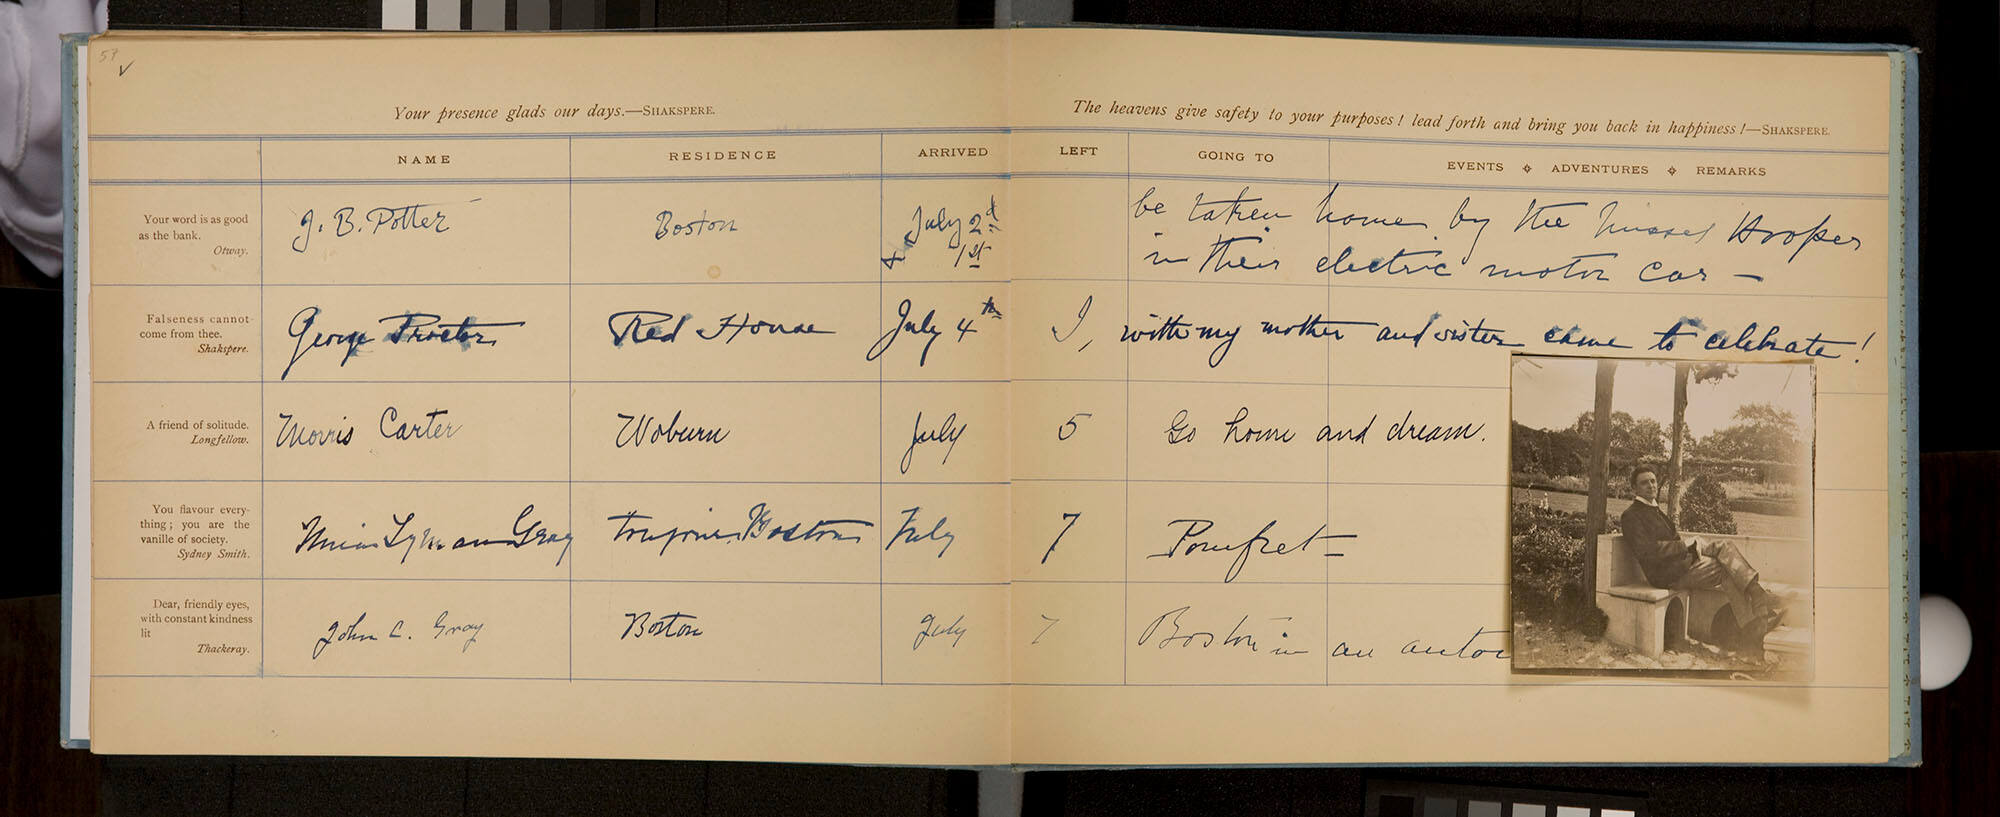 Your presence glads our days.—SHAKSPERE.
The heavens give safety to your purposes! lead forth and bring you back in happiness!—SHAKSPERE.
NAME RESIDENCE ARRIVED LEFT GOING TO EVENTS ADVENTURES REMARKS
Your word is as good
as the bank.
Otway.
J. B. Potter Boston July 2d
1st
be taken home by the Misses Hooper
in their electric motor car —
Falseness cannot
come from thee.
Shakspere.
George Proctor Red House July 4th I, with my mother and sister came to celebrate!
A friend of solitude.
Longfellow.
Morris Carter Woburn July 5 Go home and dream.
You flavour every-
thing; you are the
vanille of society.
Sydney Smith.
Lyman Gray toujours Boston July 7 Pomfret —
Dear, friendly eyes,
with constant kindness
lit
Thackeray.
John C. Gray Boston July 7 Boston in an